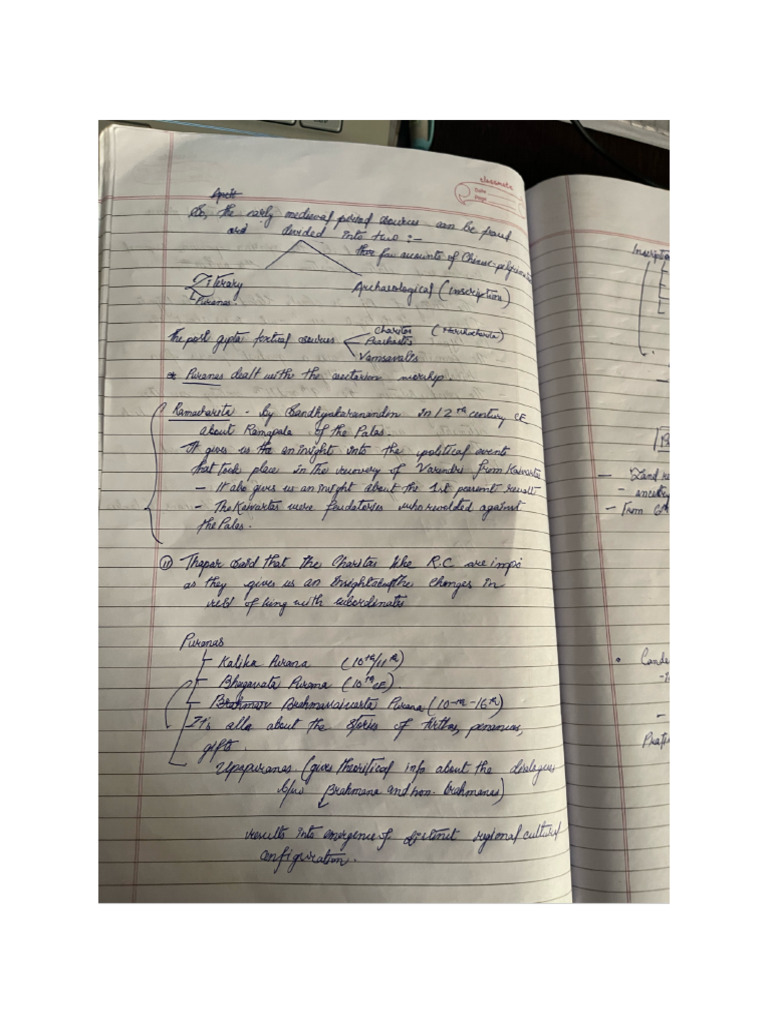 classmate
Date
Page
Apart
So, the early medieval period sources can be found
and divided into two :-
thro few accounts of Chinese-pilgrims
Literary
Puranas
Archaeological (inscription)
The post gupta textual sources
Charitas (Harshacharita)
Prashastis
Vamsavalis
* Puranas dealt with the sectarian worship.
Ramacharita - by Sandhyakaranandin in 12th century CE
about Ramapala of the Palas.
It gives us an insight into the political events
that took place in the recovery of Varendri from Kaivartas
- It also gives us an insight about the 1st peasant revolt
- The Kaivartas were feudatories who revolted against
the Palas.
(11) Thapar said that the Charitas like R.C are impo
as they gives us an insight the changes in
reln of king with subordinates
Puranas
Kalika Purana (10th/11th)
Bhagavata Purana (10th CE)
Brahmavaivarta Purana (10th-16th)
It's all about the stories of tirthas, penances,
gifts.
Upapuranas. (gives theoritical info about the dialogues
b/w Brahmana and non-brahmanas)
results into emergence of distinct regional cultural
configuration.
Inscriptio
- Land re
- ancestry
- From 6th
Conde